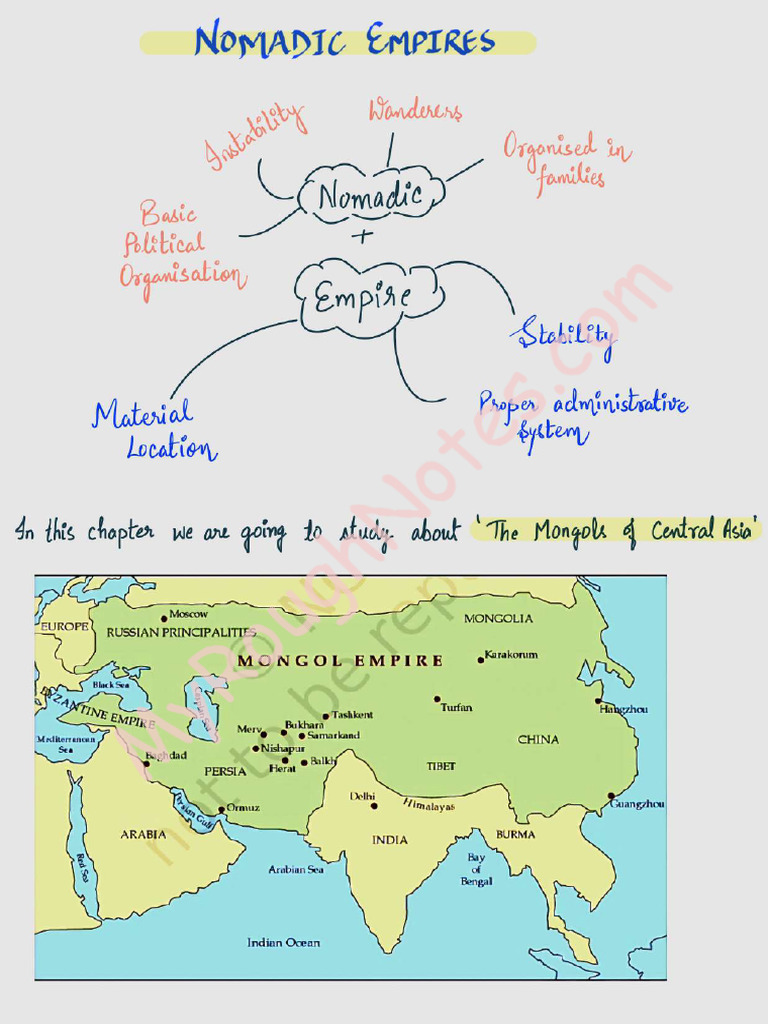 NOMADIC EMPIRES
Instability
Wanderers
Organised in
families
Nomadic
Basic
Political
Organisation
+
Empire
Stability
Material
Location
Proper administrative
system
In this chapter we are going to study about 'The Mongols of Central Asia'
MyRoughNotes.com
not to be rep
EUROPE
Moscow
RUSSIAN PRINCIPALITIES
MONGOLIA
MONGOL EMPIRE
Karakorum
Black Sea
Caspian Sea
BYZANTINE EMPIRE
Turfan
Hangzhou
Tashkent
Bukhara
Merv
Samarkand
Mediterranean
Sea
Nishapur
CHINA
Baghdad
Herat
Balkh
PERSIA
TIBET
Delhi
Himalayas
Persian Gulf
Ormuz
Guangzhou
ARABIA
INDIA
BURMA
Red Sea
Arabian Sea
Bay
of
Bengal
Indian Ocean